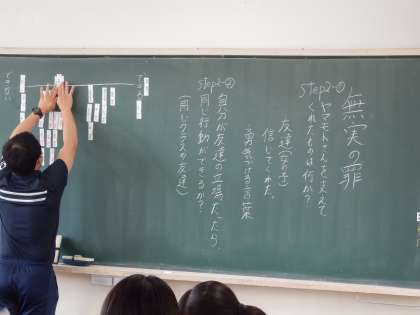 無実の罪
Step2-①
ヤマモトさんを支えて
くれたものは何か？
友達(女子)
信じてくれた
勇気づける言葉
Step2-②
自分が友達の立場だったら、
同じ行動ができるか？
(同じクラスの友達)
できる
できない